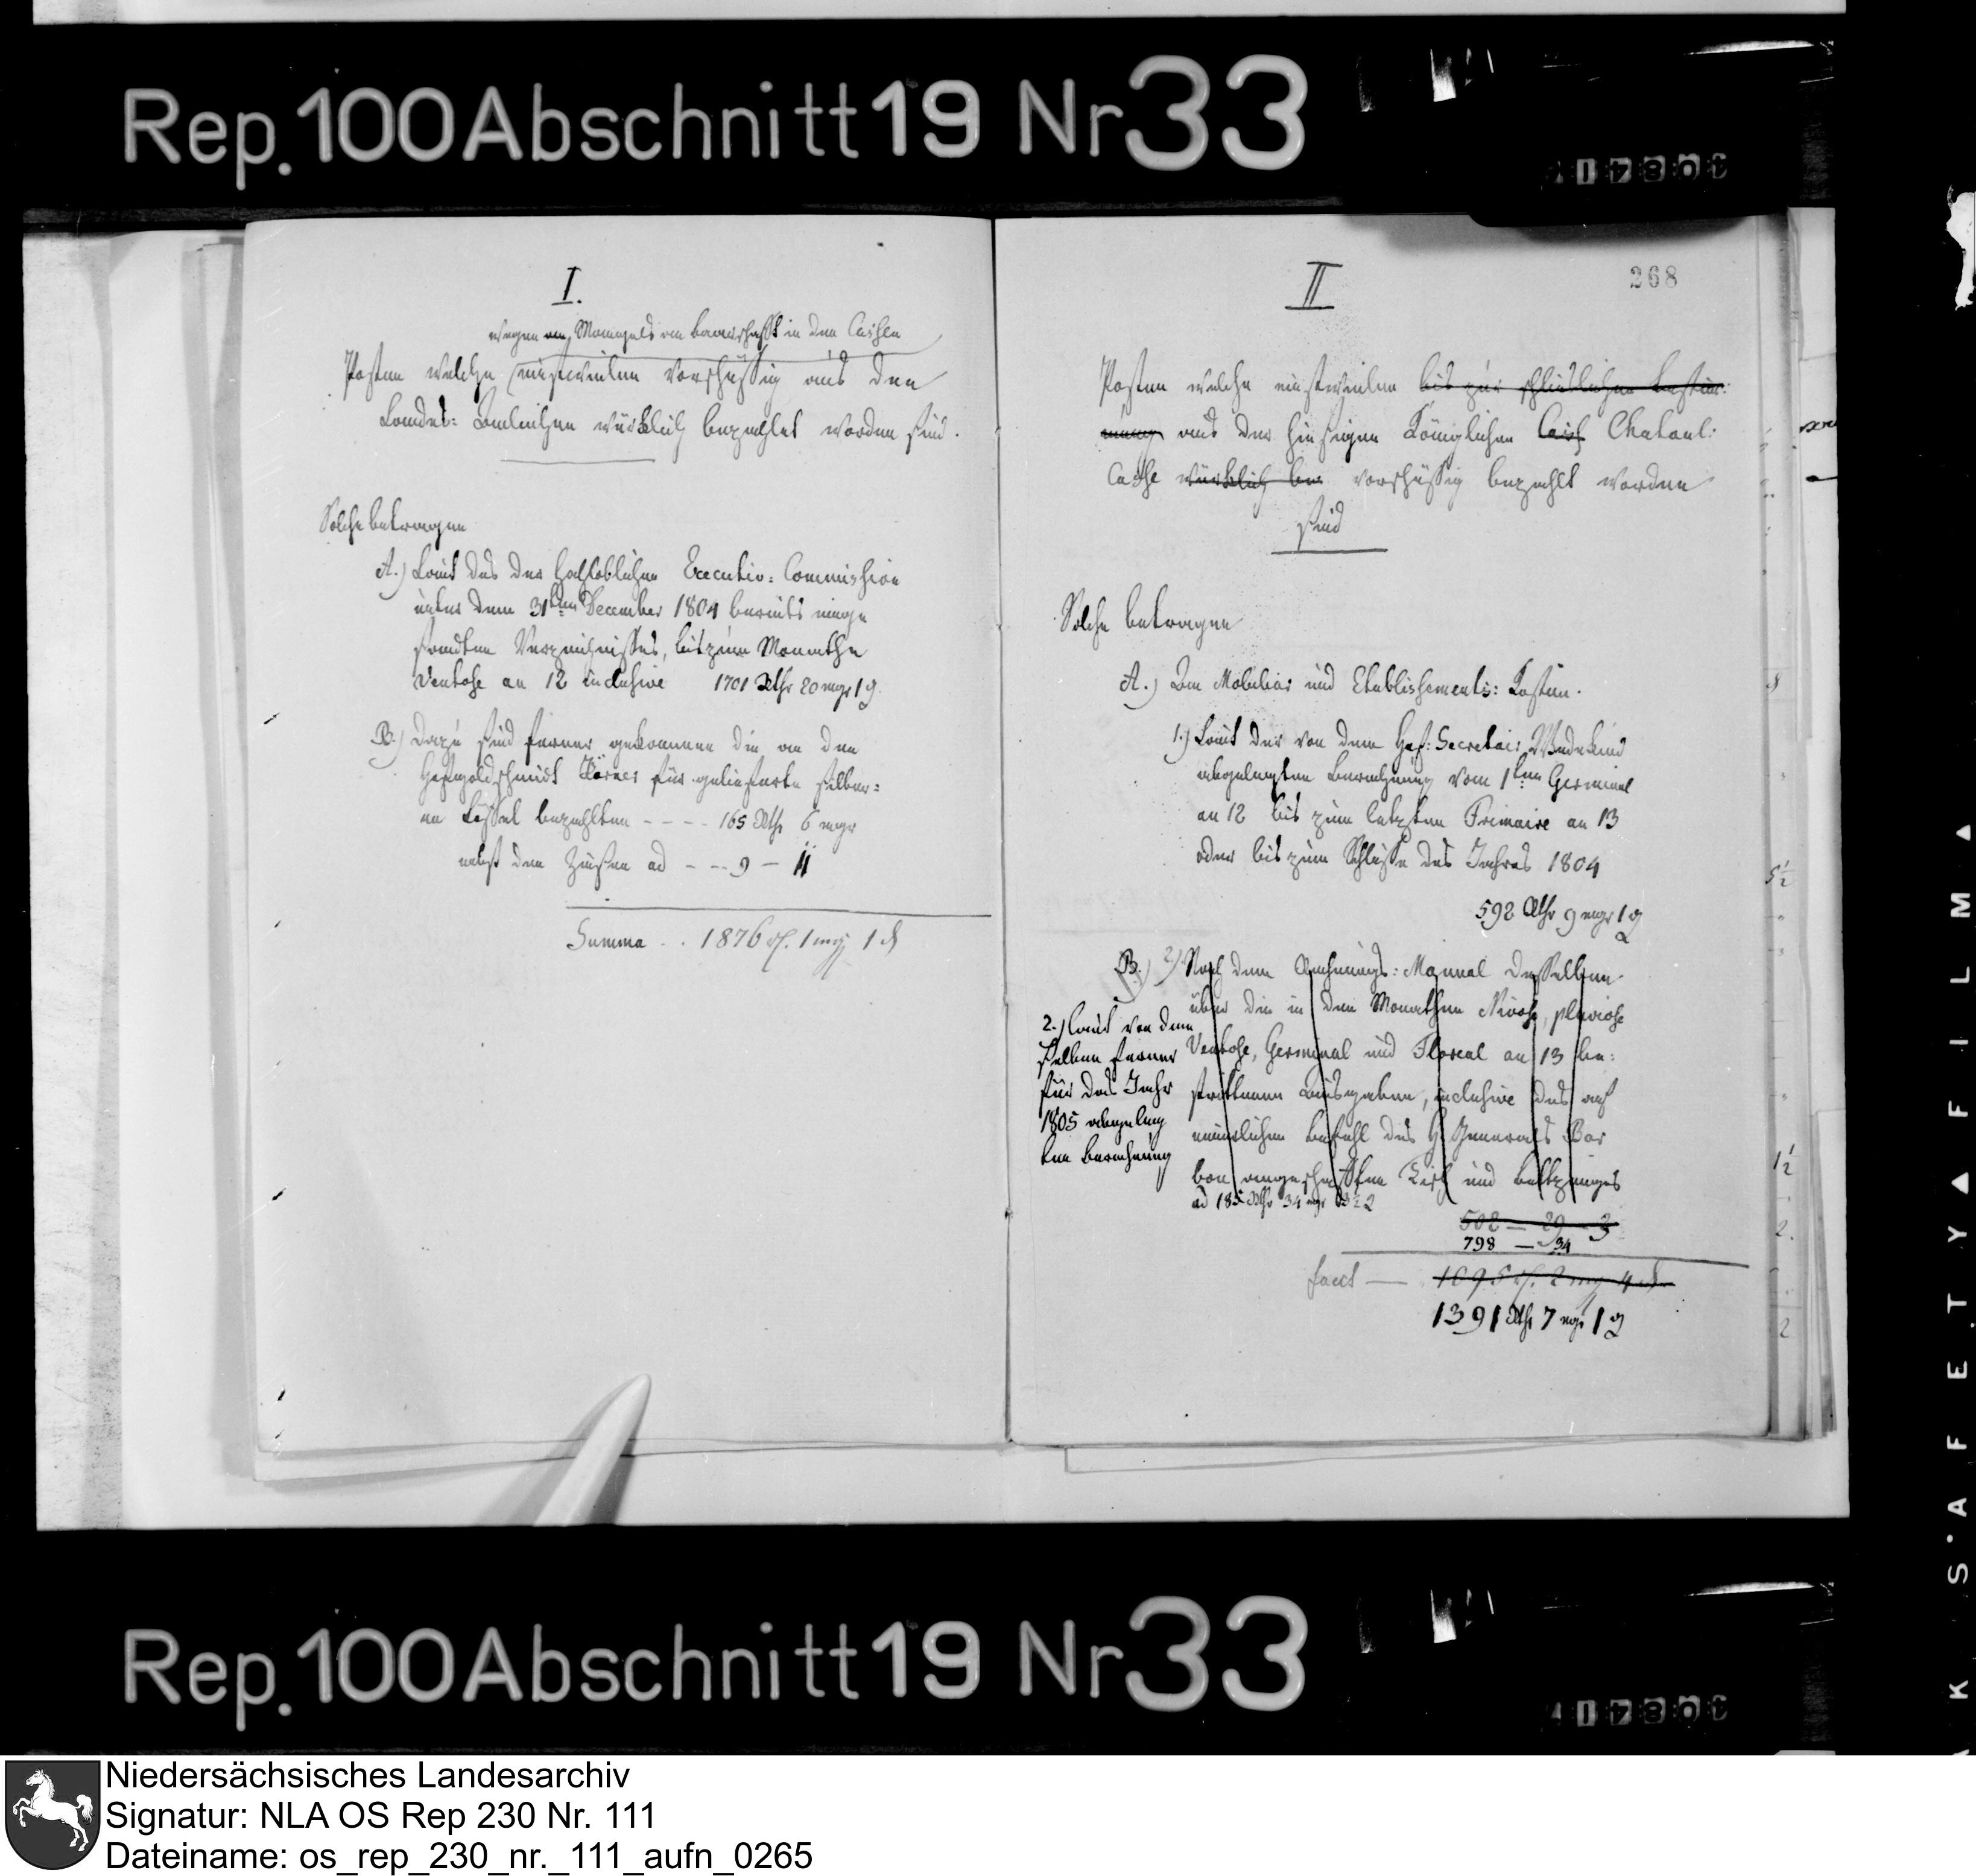 Rep. 100 Abschnitt 19 Nr 33
I.
wegen Mangels an Baarschafft in den Cassen
Posten welche einstweilen vorschüssig aus den
Landes= Domainen würklich bezahlet worden sind.
Solche betragen
A.) Laut des der Hochlöblichen Executiv= Commission
unter dem 31ten December 1804 bereits einge
sandten Verzeichnisses, bis zum Monathe
Ventose an 12 inclusive 1701 Rthr 20 mgr 1 ₰
B.) Dazu sind ferner gekommen die an den
Hofgoldschmidt Körner für gelieferte silber=
ne Löffel bezahlten - - - - 165 Rthr 6 mgr
nebst den Zinsen ad - - - 9 - 11
Summa . . 1876 rf. 1 mg 1 ₰
268
II
Posten welche einstweilen bis zur schließlichen Bestim=
mung aus der hiesigen Königlichen Cass Chatoul=
Casse würklich be vorschüssig bezahlt worden
sind
Solche betragen
A.) Zum Mobiliar und Etablissements= Kosten.
1.) Laut der von dem Hof= Secretair Wedekind
abgelegten Berechnung vom 1ten Germinal
an 12 bis zum letzten Frimaire an 13
oder bis zum Schlusse des Jahres 1804
592 Rthr 9 mgr 1 ₰
B.) 2) Nach dem Rechnungs= Manual desselben
über die in den Monathen Nivose, pluviose
Ventose, Germinal und Floreal an 13 be=
strittenen Ausgaben, inclusive des auf
mündlichen Befehl des H. Generals Bar
bou angeschafften Tisch und Bettzeuges
ad 185 Rthr 34 mgr
2.) laut von dem
selben ferner
für das Jahr
1805 abgeleg
ten Berechnung
502 — 29 — 3
798 — 34
facit — 1095 rf. 2 mg 4 ₰
1391 Rthr 7 mgr 1 ₰
8
5½
1½
2.
2
SAFETY FILM
Rep. 100 Abschnitt 19 Nr 33
Niedersächsisches Landesarchiv
Signatur: NLA OS Rep 230 Nr. 111
Dateiname: os_rep_230_nr._111_aufn_0265